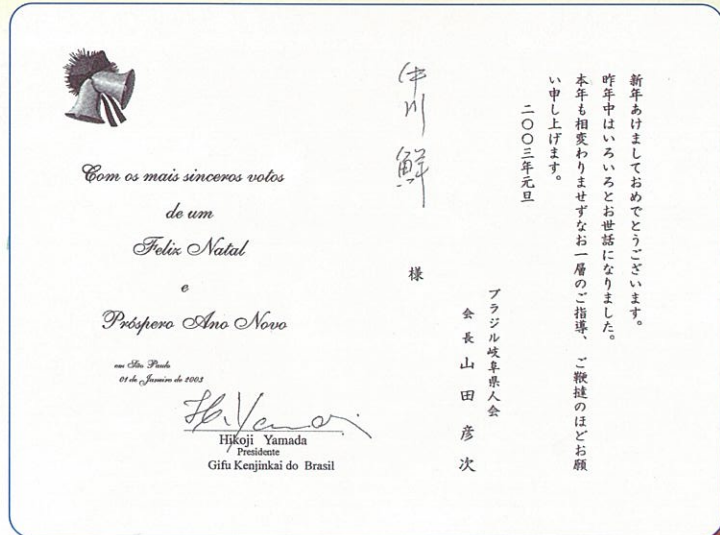 新年あけましておめでとうございます。
昨年中はいろいろとお世話になりました。
本年も相変わりませずなお一層のご指導、ご鞭撻のほどお願
い申し上げます。
二〇〇三年元旦
ブラジル岐阜県人会
会長 山田彦次
中川 鮮
様
Com os mais sinceros votos
de um
Feliz Natal
e
Próspero Ano Novo
em São Paulo
01 de Janeiro de 2003
H. Yamada
Hikoji Yamada
Presidente
Gifu Kenjinkai do Brasil